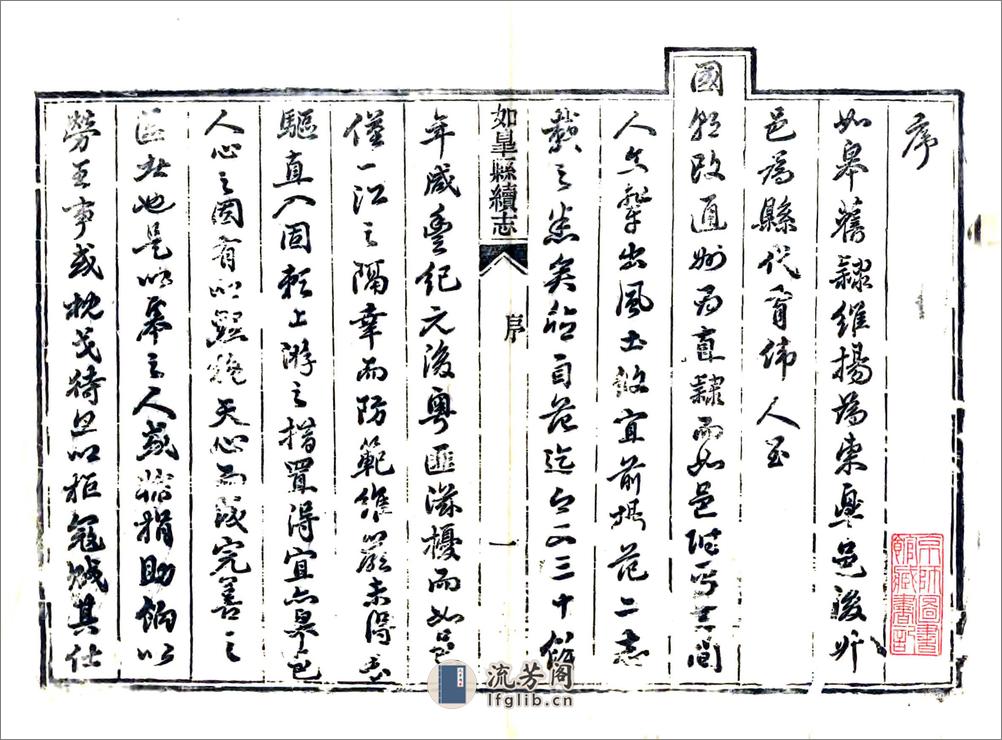 序
如皋舊隸維揚為東邑後升
邑為縣代有偉人至
國朝改通州為直隸而如邑附其間
人文輩出風土攸宜前揚范二志
載之悉矣自范迄今又三十餘
如皐縣續志
序
一
年咸豐紀元後粵匪滋擾而如邑
僅一江之隔幸而防範維嚴未得長
驅直入固賴上游之措置得宜亦皋邑
人心之固有以默挽天心而成完善之
區者也是以之人或輸捐助餉以
勞王事或枕戈待旦以拒寇賊其仕
京師圖書
館藏書記
流芳阁
lfglib.cn